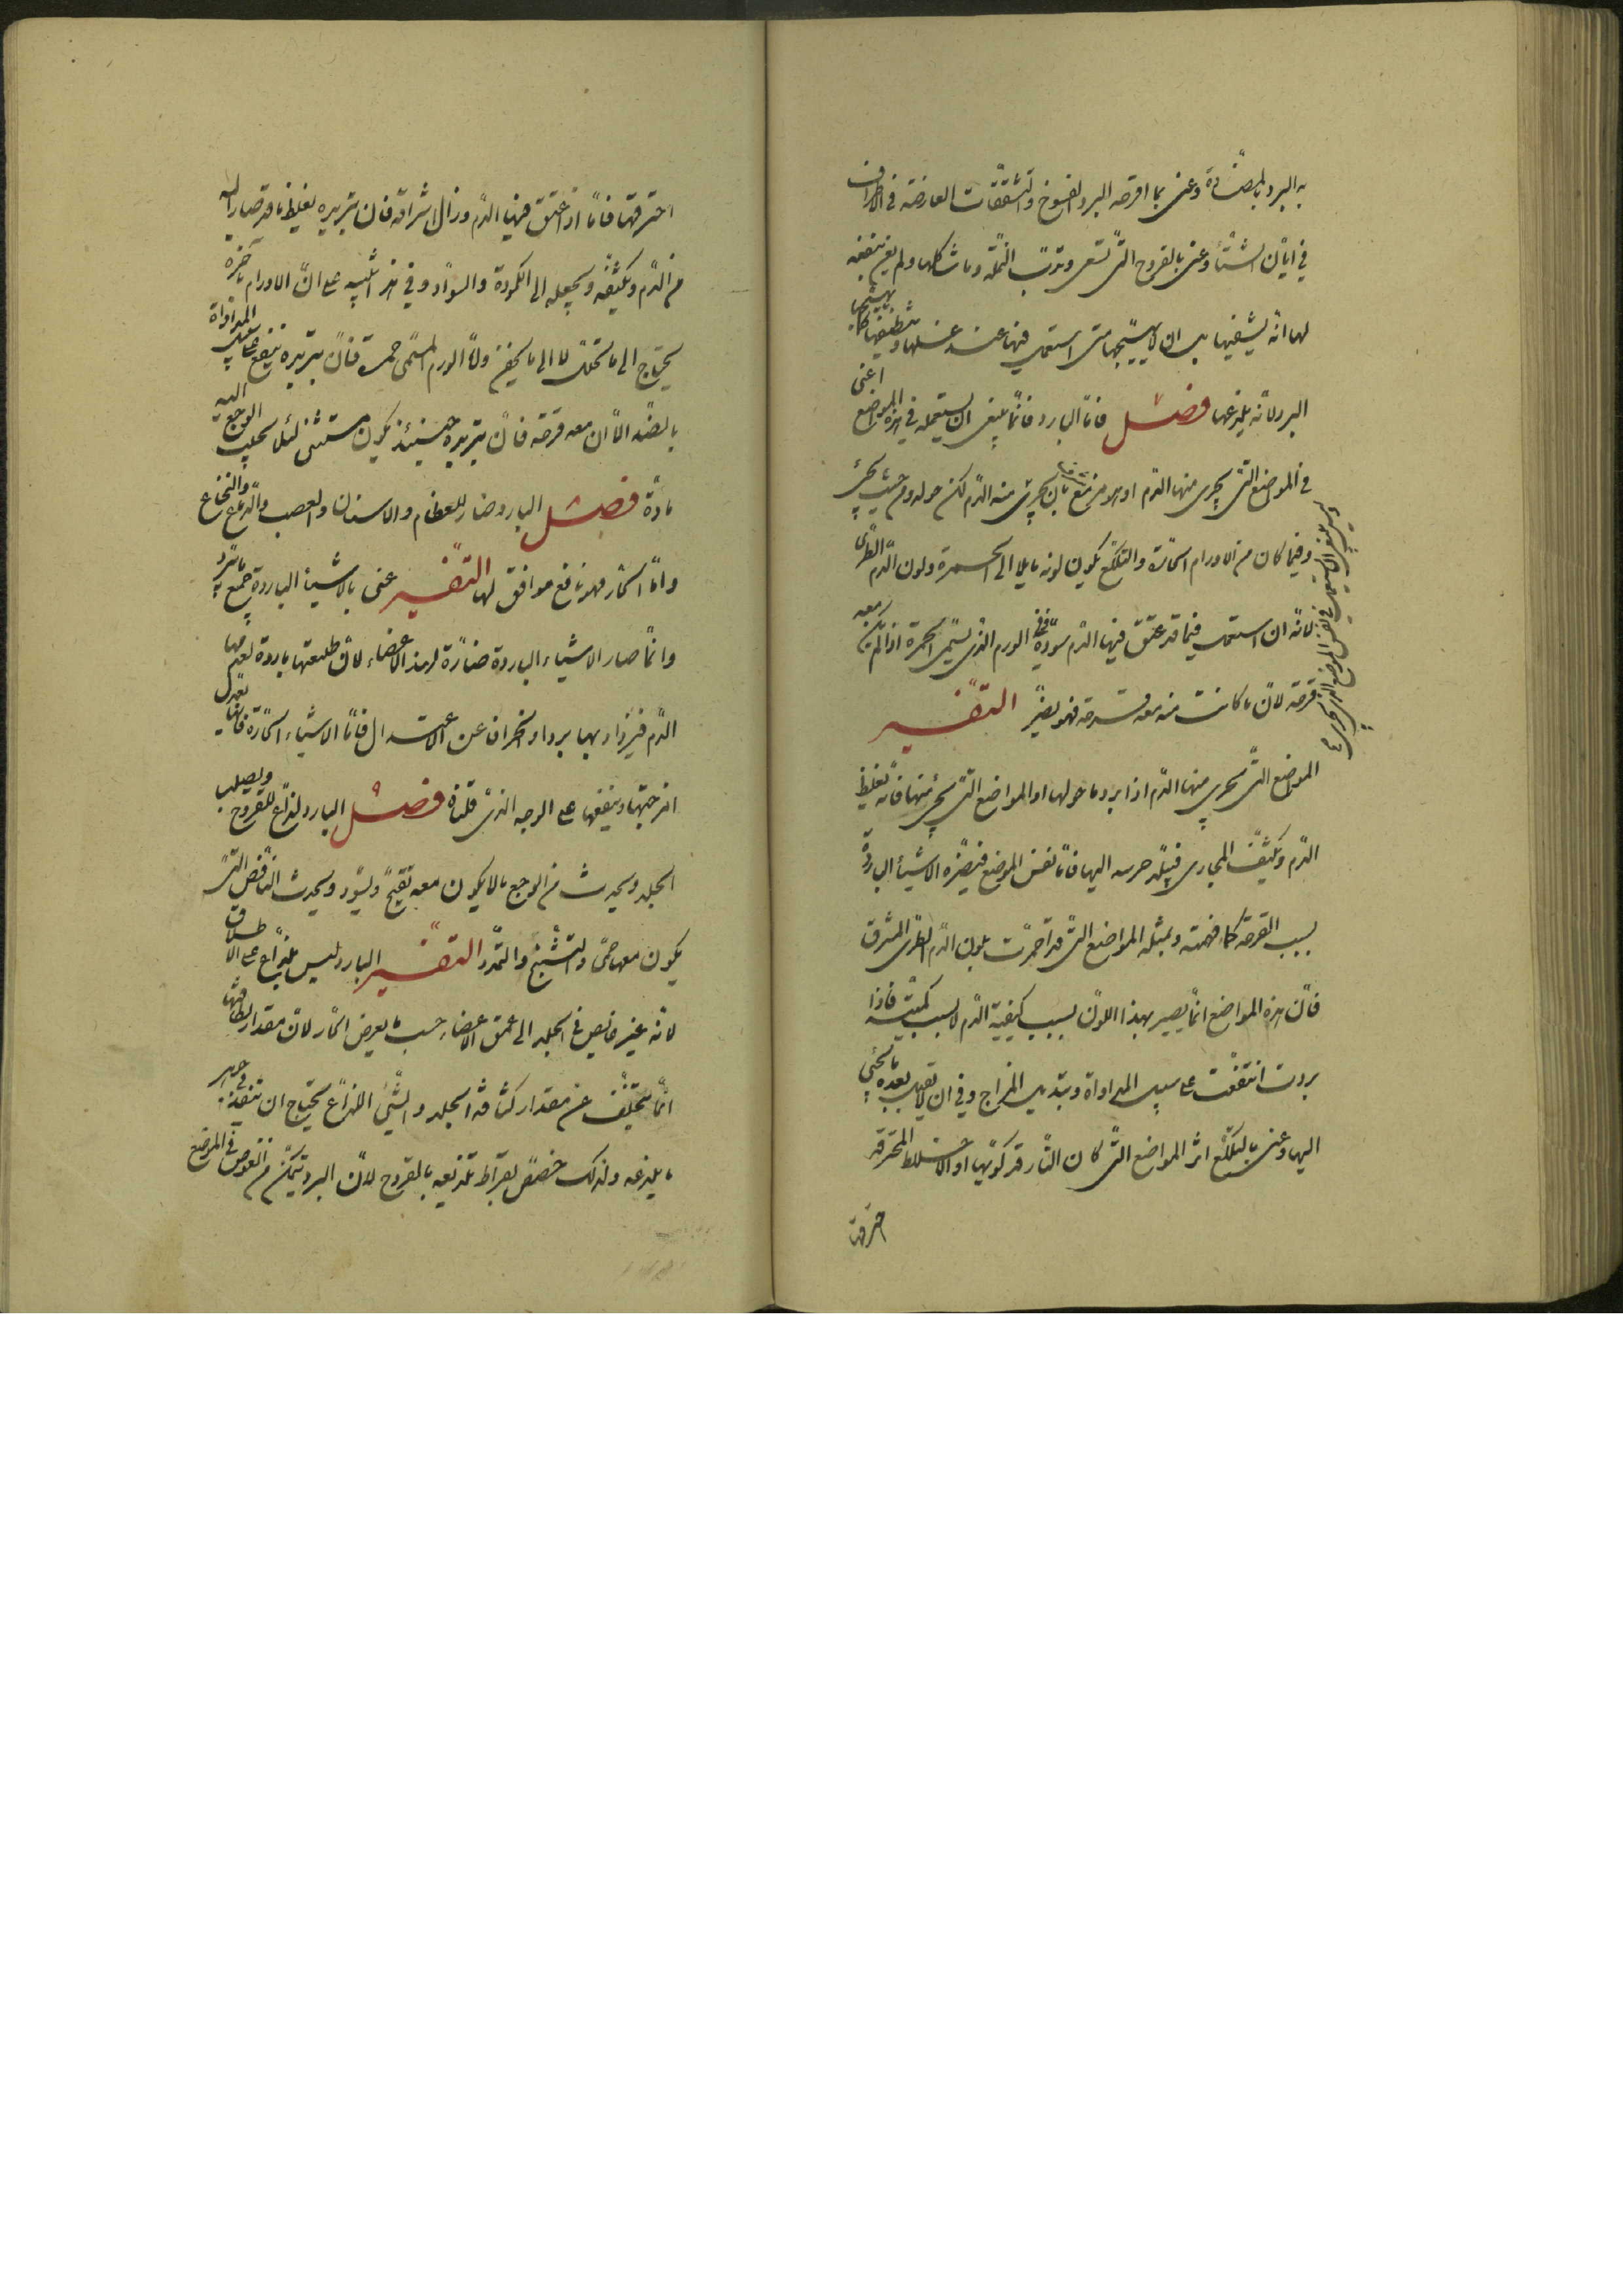 به البرد بالمضادة وعنى بما اقرحه البرد الفسوخ والتشققات العارضة في الاطراف
في ابّان الشتاء وعنى بالقروح التى تسعى وتدبّ النملة وما شاكلها ولم يعن بنفعه
لها انه يشفيها بل ان لا يهيّجها متى استعمل فيها عند غسلها وتنظيفها كما يهيّجها
البرد لانه يلذعها فصل فامّا البارد فانّما ينبغى ان يستعمله في هذه المواضع اعنى
في المواضع التى يجرى منها الدم او هو مزمع بان يجرى منه الدم لكن حوله ومن حيث يجئ
وليس ينبغى ان يستعمل في نفس الموضع الذى يجرى منه
وفيما كان من الاورام الحارّة والتلكّع يكون لونه مايلا الى الحمرة ولون الدم الطرى
لانّه ان استعمل فيما قد عتق فيها الدم سوّده وفى الورم الذى يسمّى الحمرة اذا لم يكن معه
قرحة لانّ ما كانت منه معه قرحة فهو يضرّ التفسير
المواضع التى يجرى منها الدم اذا برد ما حولها او المواضع التى يجئ منها فانّه يغلظ
الدم ويكثّف المجارى فيتلد حرسه اليها فامّا نفس الموضع فيضرّه الاشياء الباردة
بسبب القرحة كما فهمته وبمثله المواضع التى قد احمرّت بلون الدم الطرى المشرق
فانّ هذه المواضع انّما يصير بهذا اللون بسبب كيفية الدم لا بسبب كميّته فاذا
بردت انتفعت على سبيل المداواة وتبديل المزاج وفى ان لا يقبل بعده ما يجئ
اليها وعنى بالتلكّع اثر المواضع التى كان النار قد كوّتها او الاخلاط المحترقة
احترقها
احترقتها فامّا اذا عتق فيها الدم وزال اشراقه فان تبريده يغلظ ما قد صار اليه
من الدم ويكثّفه ويجعله الى الكمودة والسواد وفى هذا تنبيه على انّ الاورام بآخرة
يحتاج الى ما يحلّل لا الى ما يحقن ولانّ الورم المسمّى حمرة فانّ تبريده ينفع على سبيل المداواة
بالضدّ الّا ان معه قرحة فانّ تبريده حينئذ يكون مستثنى لئلا يجلب الوجع اليه
مادّة فصل البارد ضار للعظام والاسنان والعصب والدماغ والنخاع
وامّا الحار فهو نافع موافق لها التفسير عنى بالاشياء الباردة جميع ما يبرد
وانّما صار الاشياء الباردة ضارّة لهذه الاعضاء لانّ طبيعتها باردة لعدمها
الدم فيزداد بها بردا وانحرافا عن الاعتدال فامّا الاشياء الحارّة فانّها تعدل
امزجتها وينفعها على الوجه الذى قلناه فصل البارد لذّاع للقروح ويصلب
الجلد ويحدث من الوجع ما لا يكون معه تقيّح ويسوّد ويحدث النافض التى
يكون معها حمّى والتشنّج والتمدّد التفسير البارد ليس بلذّاع على الاطلاق
لانّه غير غايص في الجلد الى عمق الاعضاء حسب ما يعرض الحار لانّ مقدار لطافتها
انّما يتخلّف عن مقدار كثافة الجلد والشئ اللذّاع يحتاج ان ينفذ في جوهر
ما يلذعه ولذلك خصّص بقراط تلذيعه بالقروح لانّ البرد يتمكّن من الغوص في المواضع